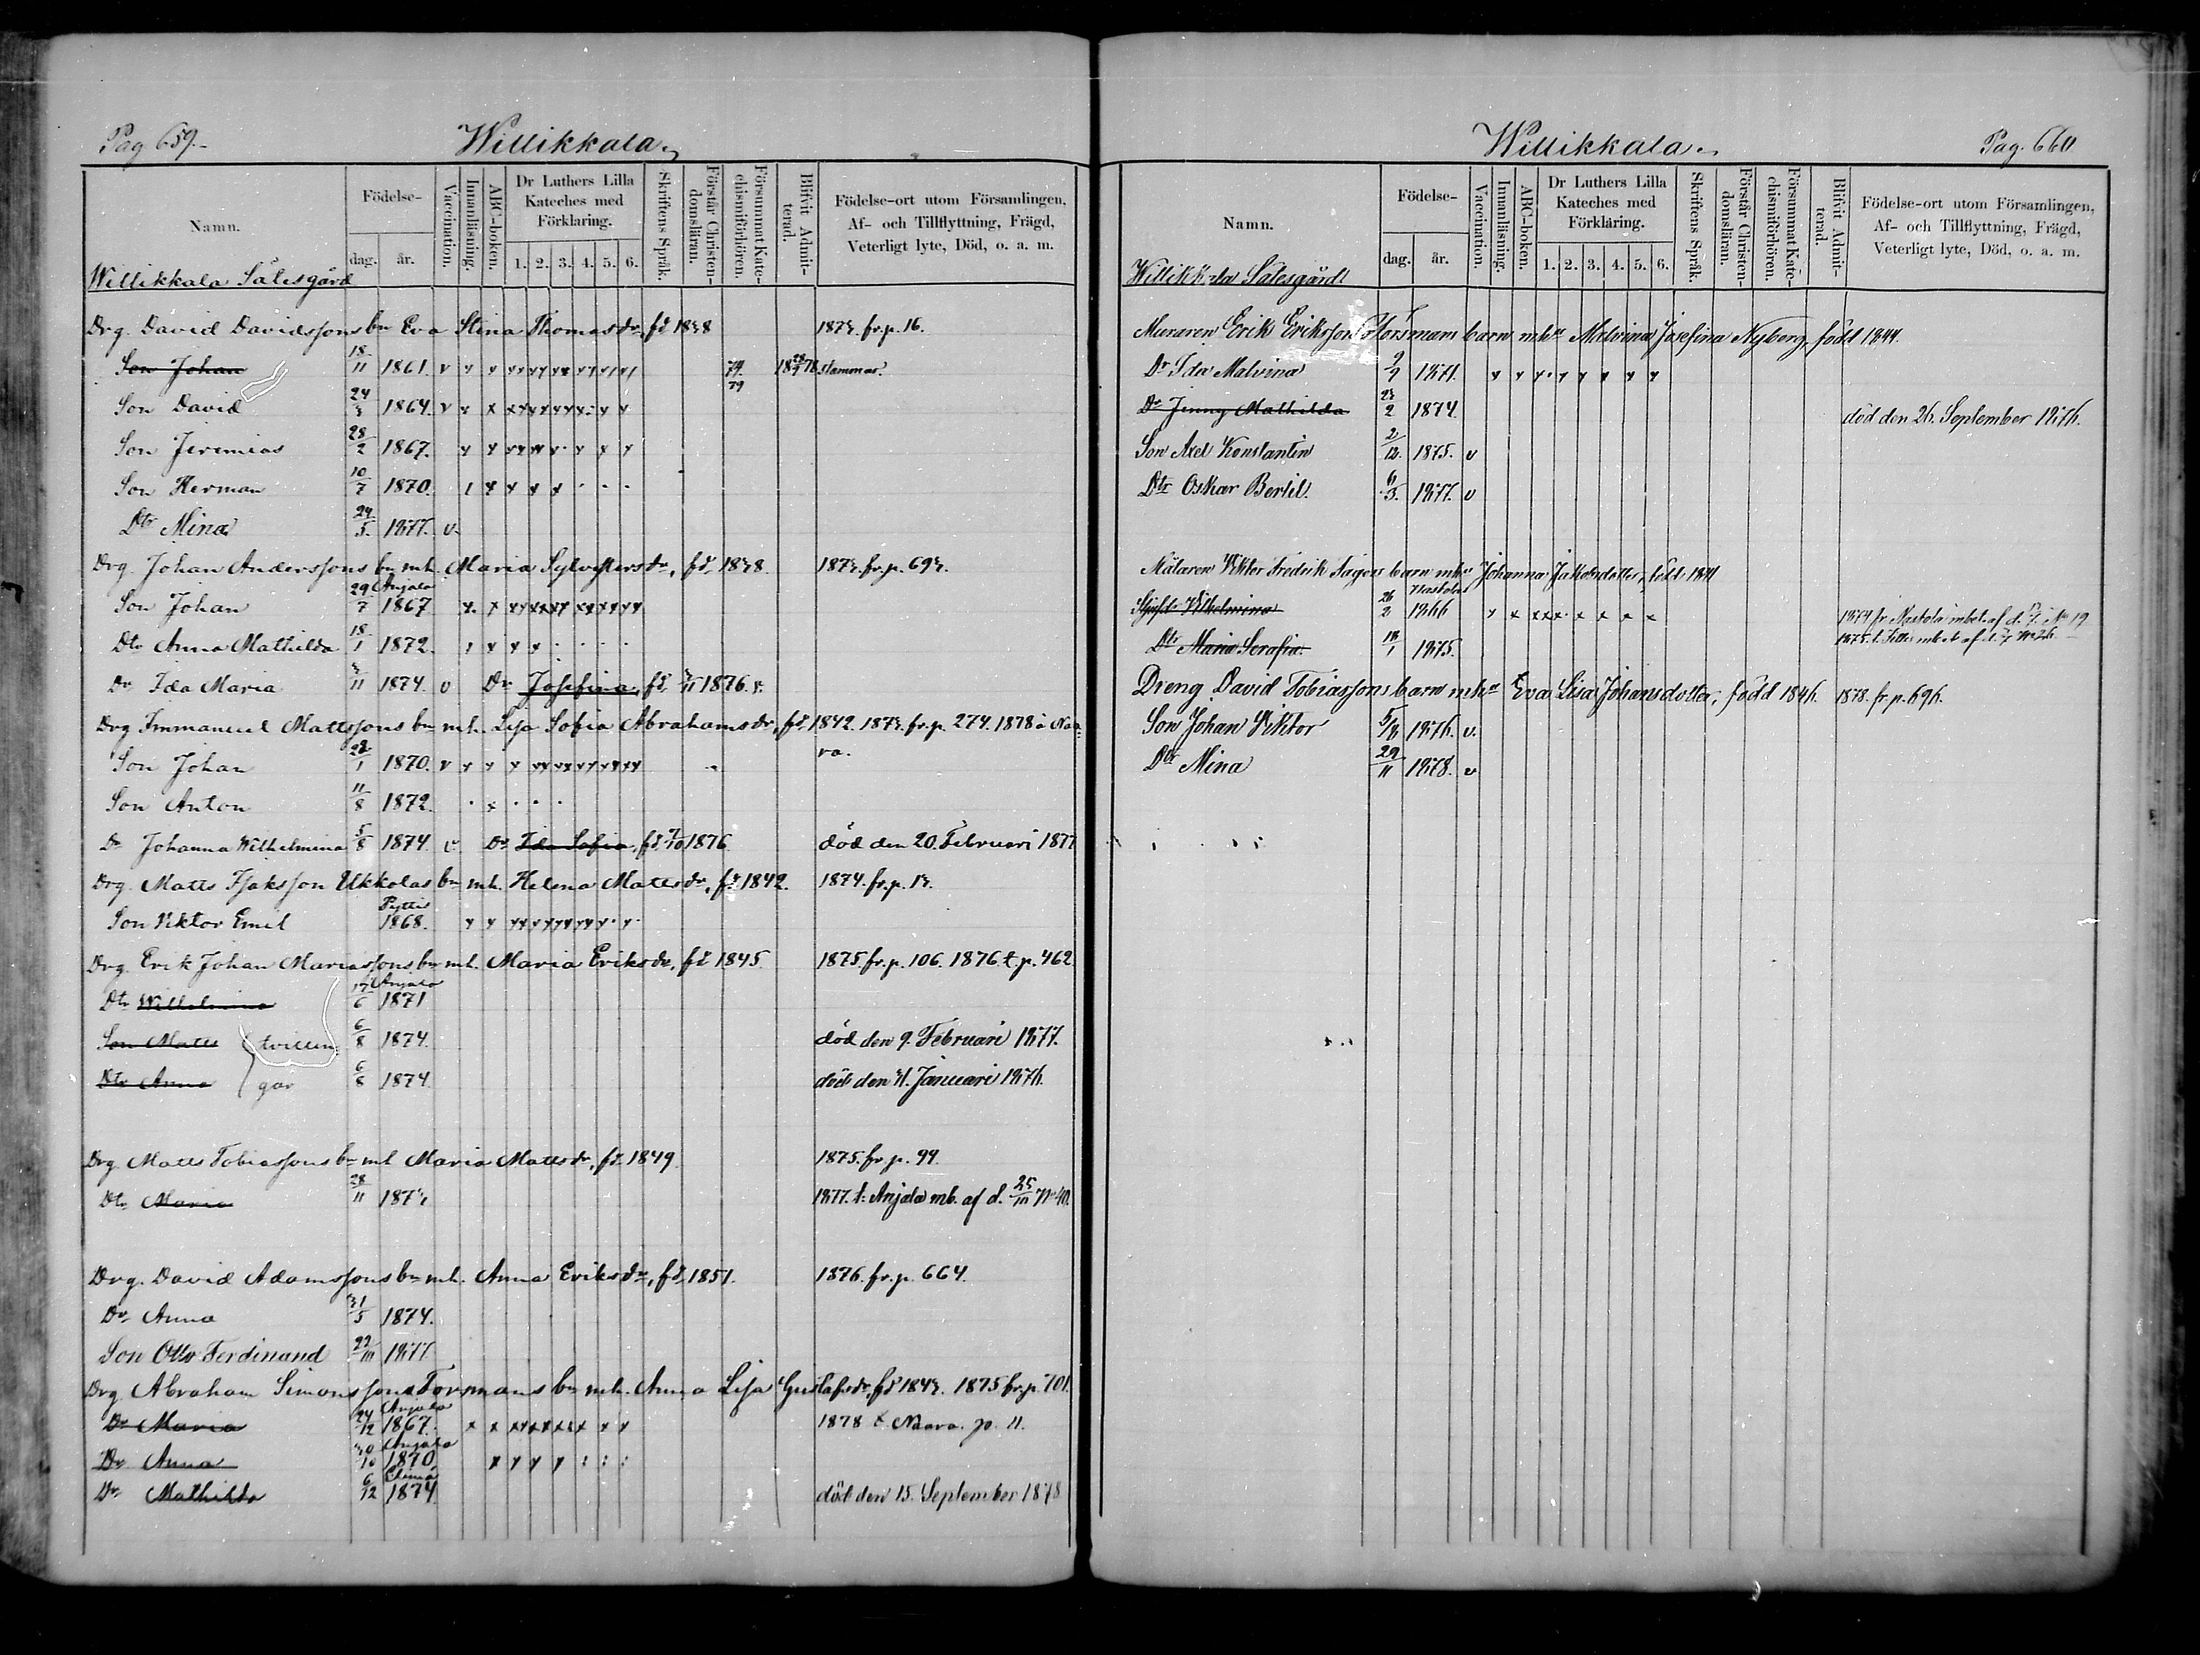 Pag 659.
Willikkala.
Namn.
Födelse-
dag.
år.
Vaccination.
Innanläsning.
ABC-boken.
Dr Luthers Lilla
Kateches med
Förklaring.
1. 2. 3. 4. 5. 6.
Skriftens Språk.
Förstår Christen-
domsläran.
Försummat Kate-
chismiförhören.
Blifvit Admit-
terad.
Födelse-ort utom Församlingen,
Af- och Tillflyttning, Frägd,
Veterligt lyte, Död, o. a. m.
Willikkala Sälesgård
Drg. David Davidssons bn Eva Stina Thomasdr, fd 1838 1873. fr. p. 16.
Son Johan 18/11 1861. v 79. 79 stammar.
Son David 24/3 1864. v
Son Jeremias 28/2 1867.
Son Herman 10/7 1870.
Dtr Mina 24/5. 1877. v.
Drg. Johan Anderssons bn mh. Maria Sylvestersdr, fd. 1838. 1873. fr. p. 693.
Anjala
Son Johan 29/7 1867
Dtr Anna Mathilda 18/1 1872.
Dr Ida Maria 3/11 1874. v Dr Josefina, fd. 1876. v.
Drg Immanuel Mattssons bn mh. Lisa Sofia Abrahamsdr, fd 1842. 1873. fr. p. 274. 1878 i Naa-
ra.
Son Johan 28/1 1870. v
Son Anton 11/8 1872.
Dr Johanna Wilhelmina 5/8 1874. v Dr Ida Sofia, fd. 1876 död den 20. Februari 1877
Drg. Matts Isaksson Ukkolas bn mh. Helena Mattsdr, fd 1842. 1874. fr. p. 13.
Pyttis
Son Viktor Emil 1868.
Drg. Erik Johan Mariassons bn mh. Maria Eriksdr, fd 1845. 1875 fr. p. 106. 1876 t. p. 462
Anjala
Dtr Wilhelmina 17/6 1871
Son Matts tvillin 6/8 1874. död den 9. Februari 1877.
Dtr Anna gar 6/8 1874 död den 31. Januari 1876.
Drg. Matts Tobiassons bn mh Maria Mattsdr, fd. 1849. 1875. fr p. 99.
Dtr Maria 28/11 1873 1877. t. Anjala mb. af d. 25/10 No 40.
Drg. David Adamssons bn mh. Anna Eriksdr, fd. 1851. 1876. fr. p. 664.
Dr Anna 31/5 1874.
Son Otto Ferdinand 22/10 1877
Drg. Abraham Simonssons Formans bn mh. Anna Lisa Gustafsdr, fd 1843. 1875 fr. p. 701.
Anjala
Dr Maria 24/12 1867. 1878 t. Naara. p. 11.
Anjala
Dr Anna 30/10 1870
Elimä
Dr Mathilda 6/12 1874. död den 15. September 1878
Willikkala.
Pag. 660
Namn.
Födelse-
dag.
år.
Vaccination.
Innanläsning.
ABC-boken.
Dr Luthers Lilla
Kateches med
Förklåring.
1. 2. 3. 4. 5. 6.
Skriftens Språk.
Förstår Christen-
domsläran.
Försummat Kate-
chismiförhören.
Blifvit Admit-
terad.
Födelse-ort utom Församlingen,
Af- och Tillflyttning, Frägd,
Veterligt lyte, Död, o. a. m.
Willikkala Sälesgård
Muraren Erik Eriksson Forsman barn mhu Malvina Josefina Nyborg, född 1844.
Dr Ida Malvina 9/9 1871.
Dr Jenny Mathilda 23/2 1874. död den 26. September 1876.
Son Axel Konstantin 2/12. 1875. v
Dtr Oskar Bertil. 6/3. 1877. v
Målaren Viktor Fredrik Fagers barn mhu Johanna Jakobsdotter, född 1841
Nastola
Wilhelmina 26/2 1866 1874 fr Nastola mbet. af d. No 19
Dtr Maria Serafia. 18/1 1875. 1875. t. mbet af d. No 26.
Dreng David Tobiassons barn mhu Eva Lisa Johansdotter, född 1846. 1878. fr. p. 696.
Son Johan Viktor 5/8 1876. v.
Dtr Mina 29/11 1878. v